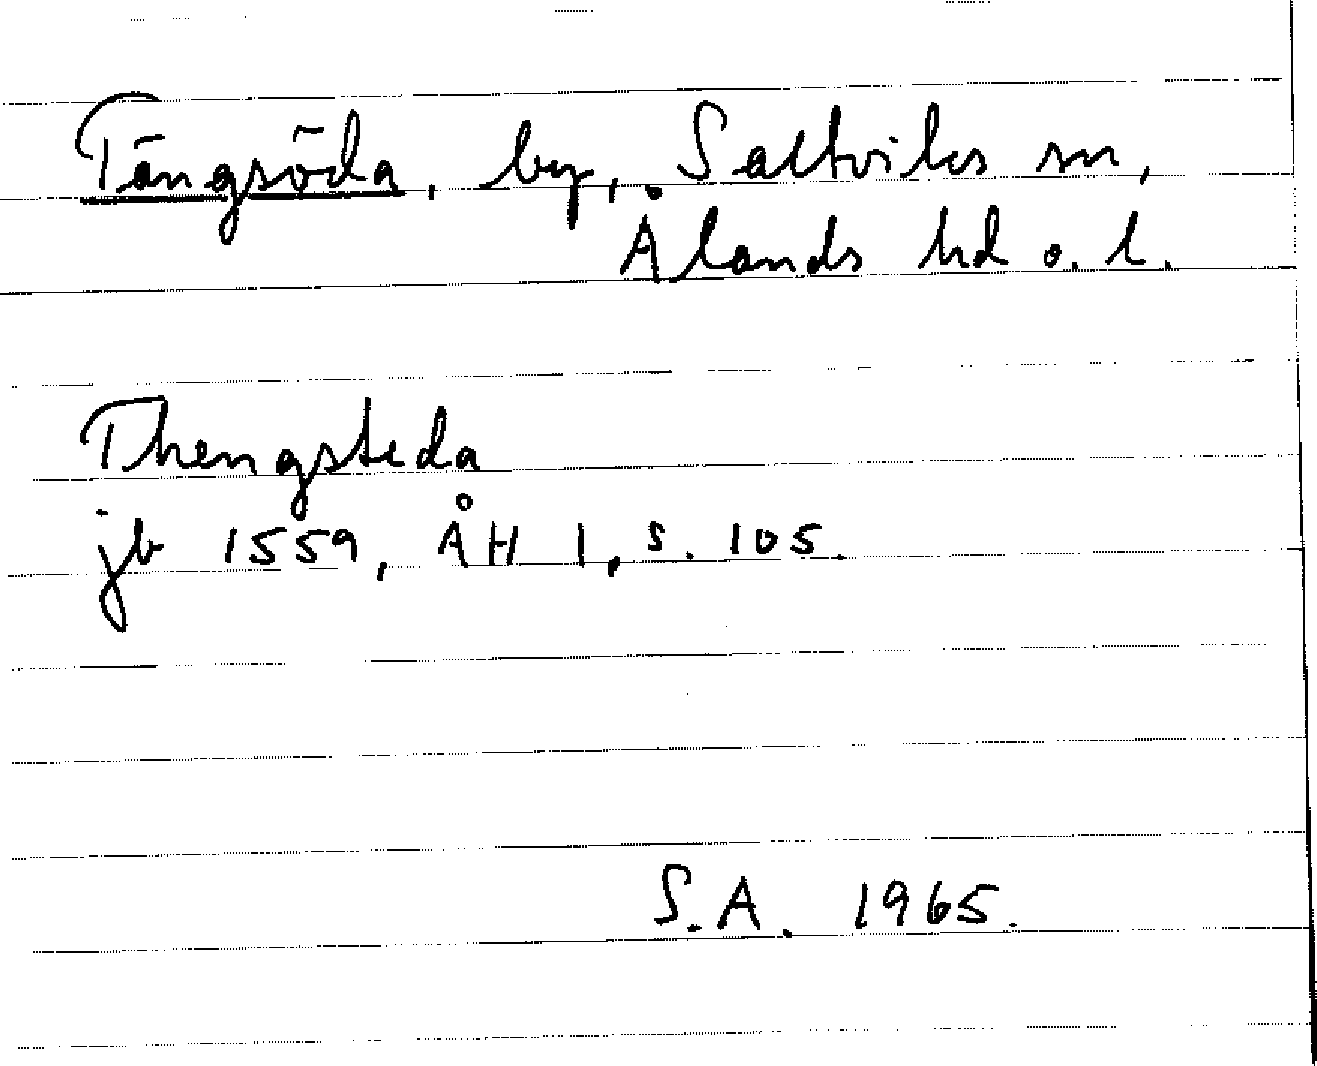 Tängsöda, by, Saltviks sn,
Ålands hd o. l.
Thengsteda
jb 1559, ÅH I, s. 105.
S.A. 1965.